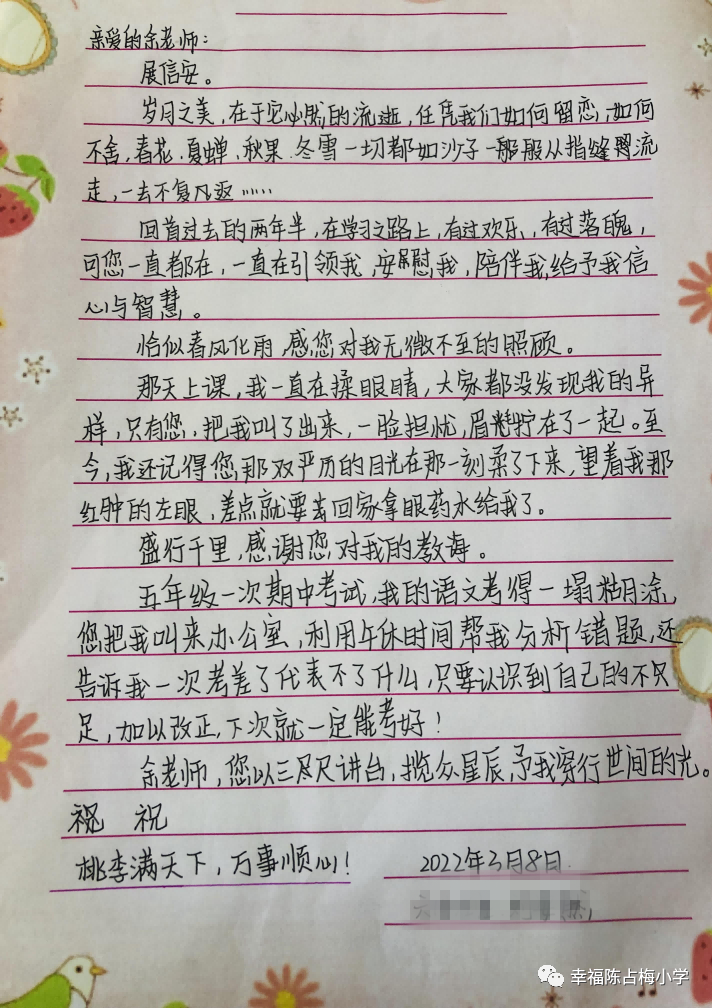 亲爱的余老师：
展信安。
岁月之美，在于它必然的流逝，任凭我们如何留恋，如何
不舍，春花、夏蝉、秋果、冬雪一切都如沙子一般般从指缝间流
走，一去不复几返……
回首过去的两年半，在学习之路上，有过欢乐，有过落魄，
可您一直都在，一直在引领我，安慰我，陪伴我，给予我信
心与智慧。
恰似春风化雨，感您对我无微不至的照顾。
那天上课，我一直在揉眼睛，大家都没发现我的异
样，只有您，把我叫了出来，一脸担忧，眉拧在了一起。至
今，我还记得您，那双严历的目光在那一刻柔了下来，望着我那
红肿的左眼，差点就要去回家拿眼药水给我了。
盛行千里，感谢您对我的教诲。
五年级一次期中考试，我的语文考得一塌糊涂，
您把我叫来办公室，利用午休时间帮我分析错题，还
告诉我一次考差了代表不了什么，只要认识到自己的不
足，加以改正，下次就一定能考好！
余老师，您以三尺讲台，揽众星辰，予我穿行世间的光。
祝 祝
桃李满天下，万事顺心！ 2022年3月8日
幸福陈占梅小学